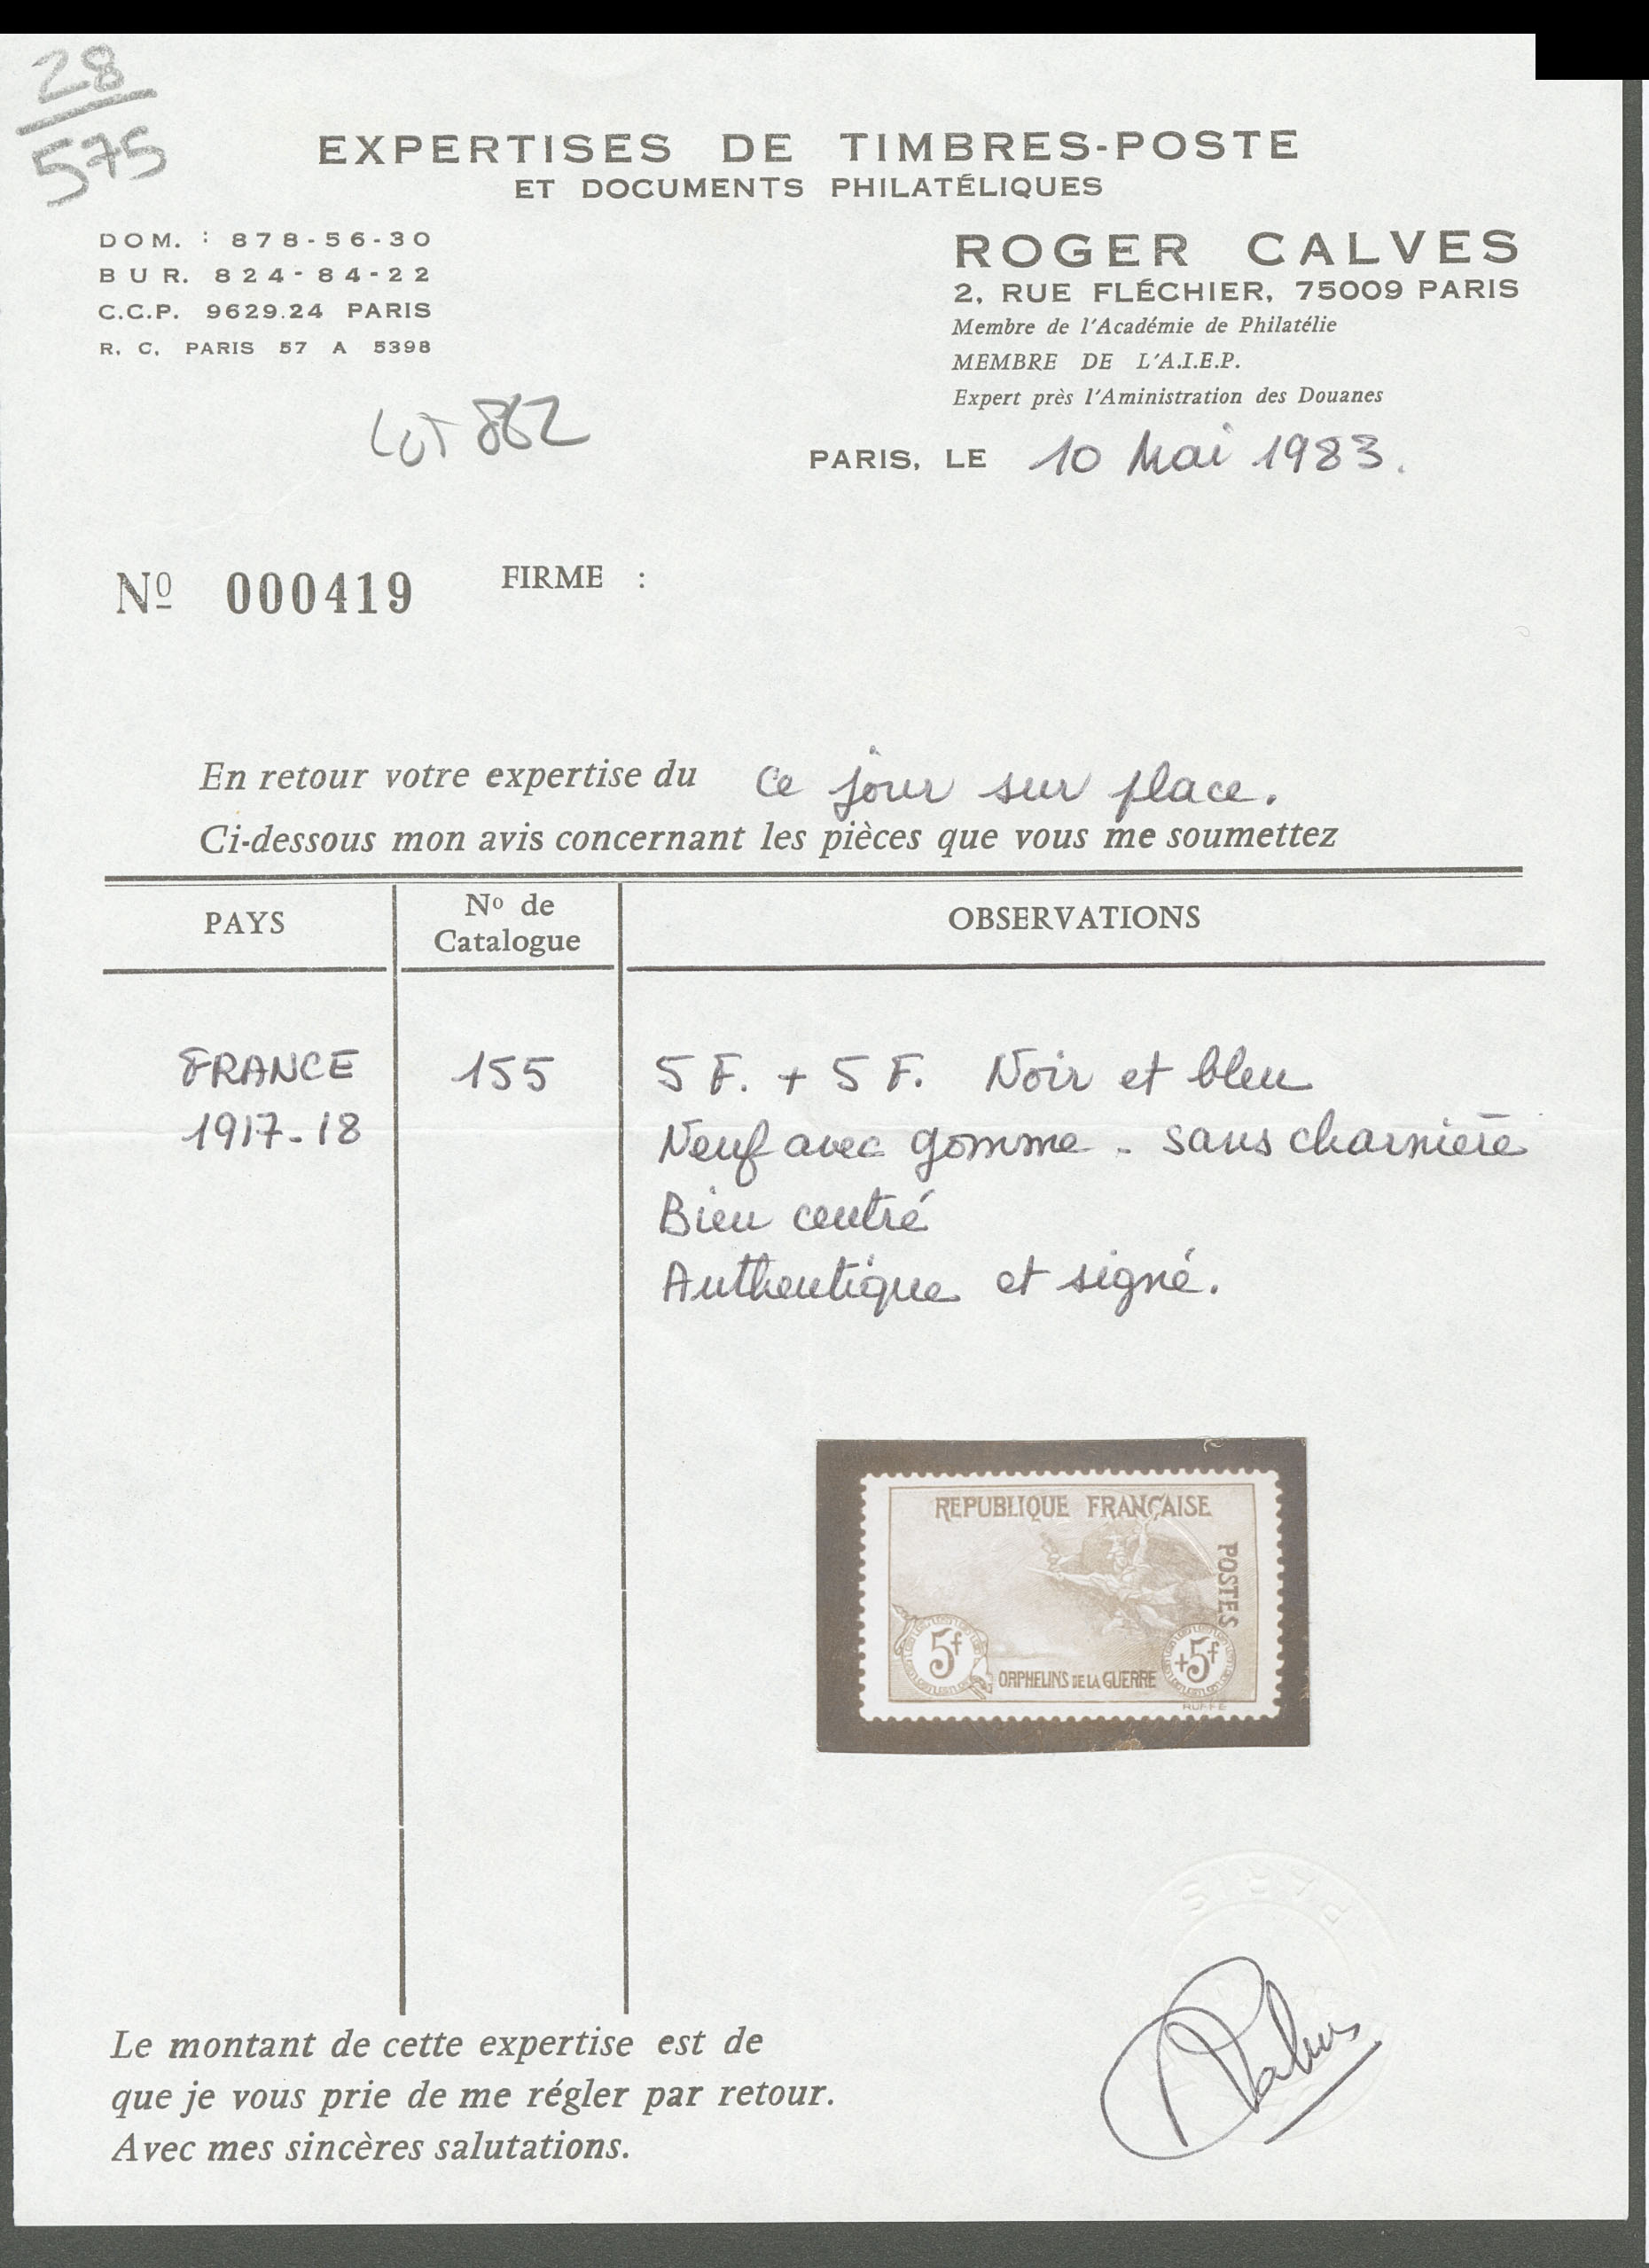 28
575
EXPERTISES DE TIMBRES-POSTE
ET DOCUMENTS PHILATÉLIQUES
DOM. : 878-56-30
BUR. 824-84-22
C.C.P. 9629.24 PARIS
R. C. PARIS 57 A 5398
ROGER CALVES
2, RUE FLÉCHIER, 75009 PARIS
Membre de l'Académie de Philatélie
MEMBRE DE L'A.I.E.P.
Expert près l'Aministration des Douanes
LOT 862
PARIS, LE 10 Mai 1983.
Nº 000419 FIRME :
En retour votre expertise du ce jour sur place.
Ci-dessous mon avis concernant les pièces que vous me soumettez
PAYS
Nº de
Catalogue
OBSERVATIONS
FRANCE 155 5 F. + 5 F. Noir et bleu
1917-18 Neuf avec gomme - sans charnière
Bien centré
Authentique et signé.
REPUBLIQUE FRANÇAISE
POSTES
5f
ORPHELINS DE LA GUERRE
+5f
RUFFÉ
PARIS
Calves
Le montant de cette expertise est de
que je vous prie de me régler par retour.
Avec mes sincères salutations.